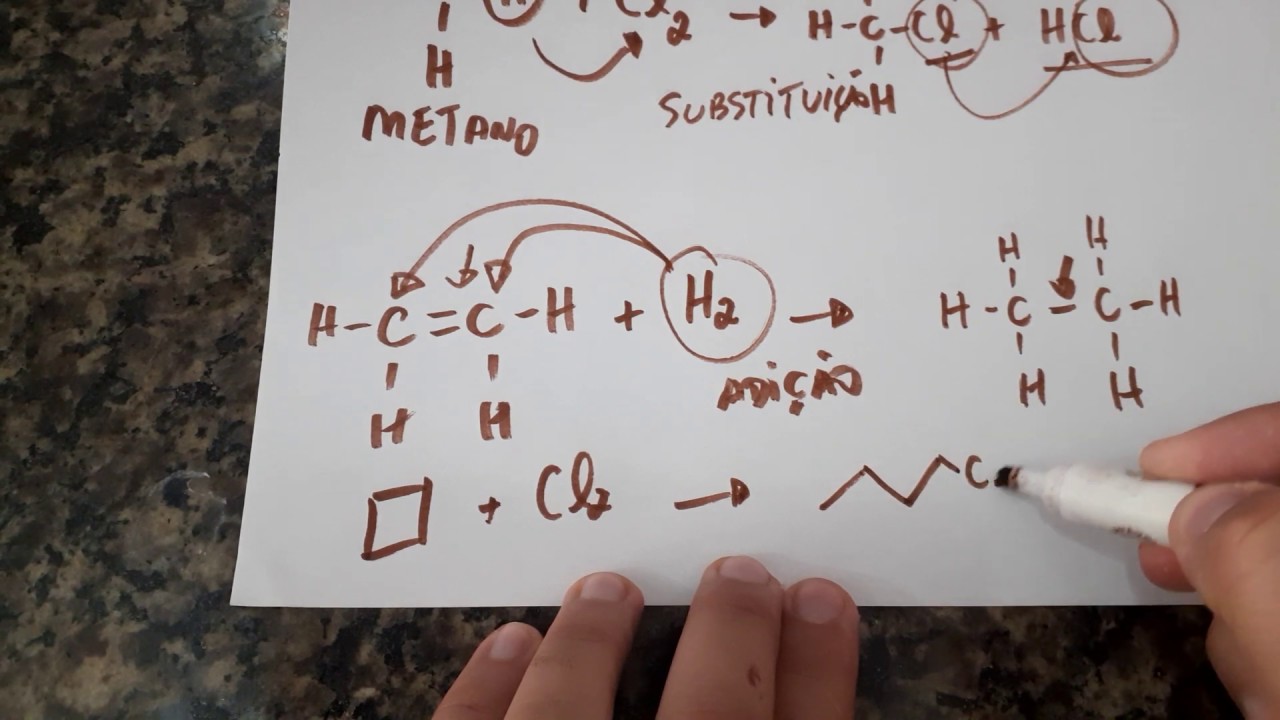 H Cl2 → H-C-Cl + HCl
H
METANO SUBSTITUIÇÃH
H H
H-C=C-H + H2 → H-C-C-H
ADIÇÃO
H H H H
□ + Cl2 → C